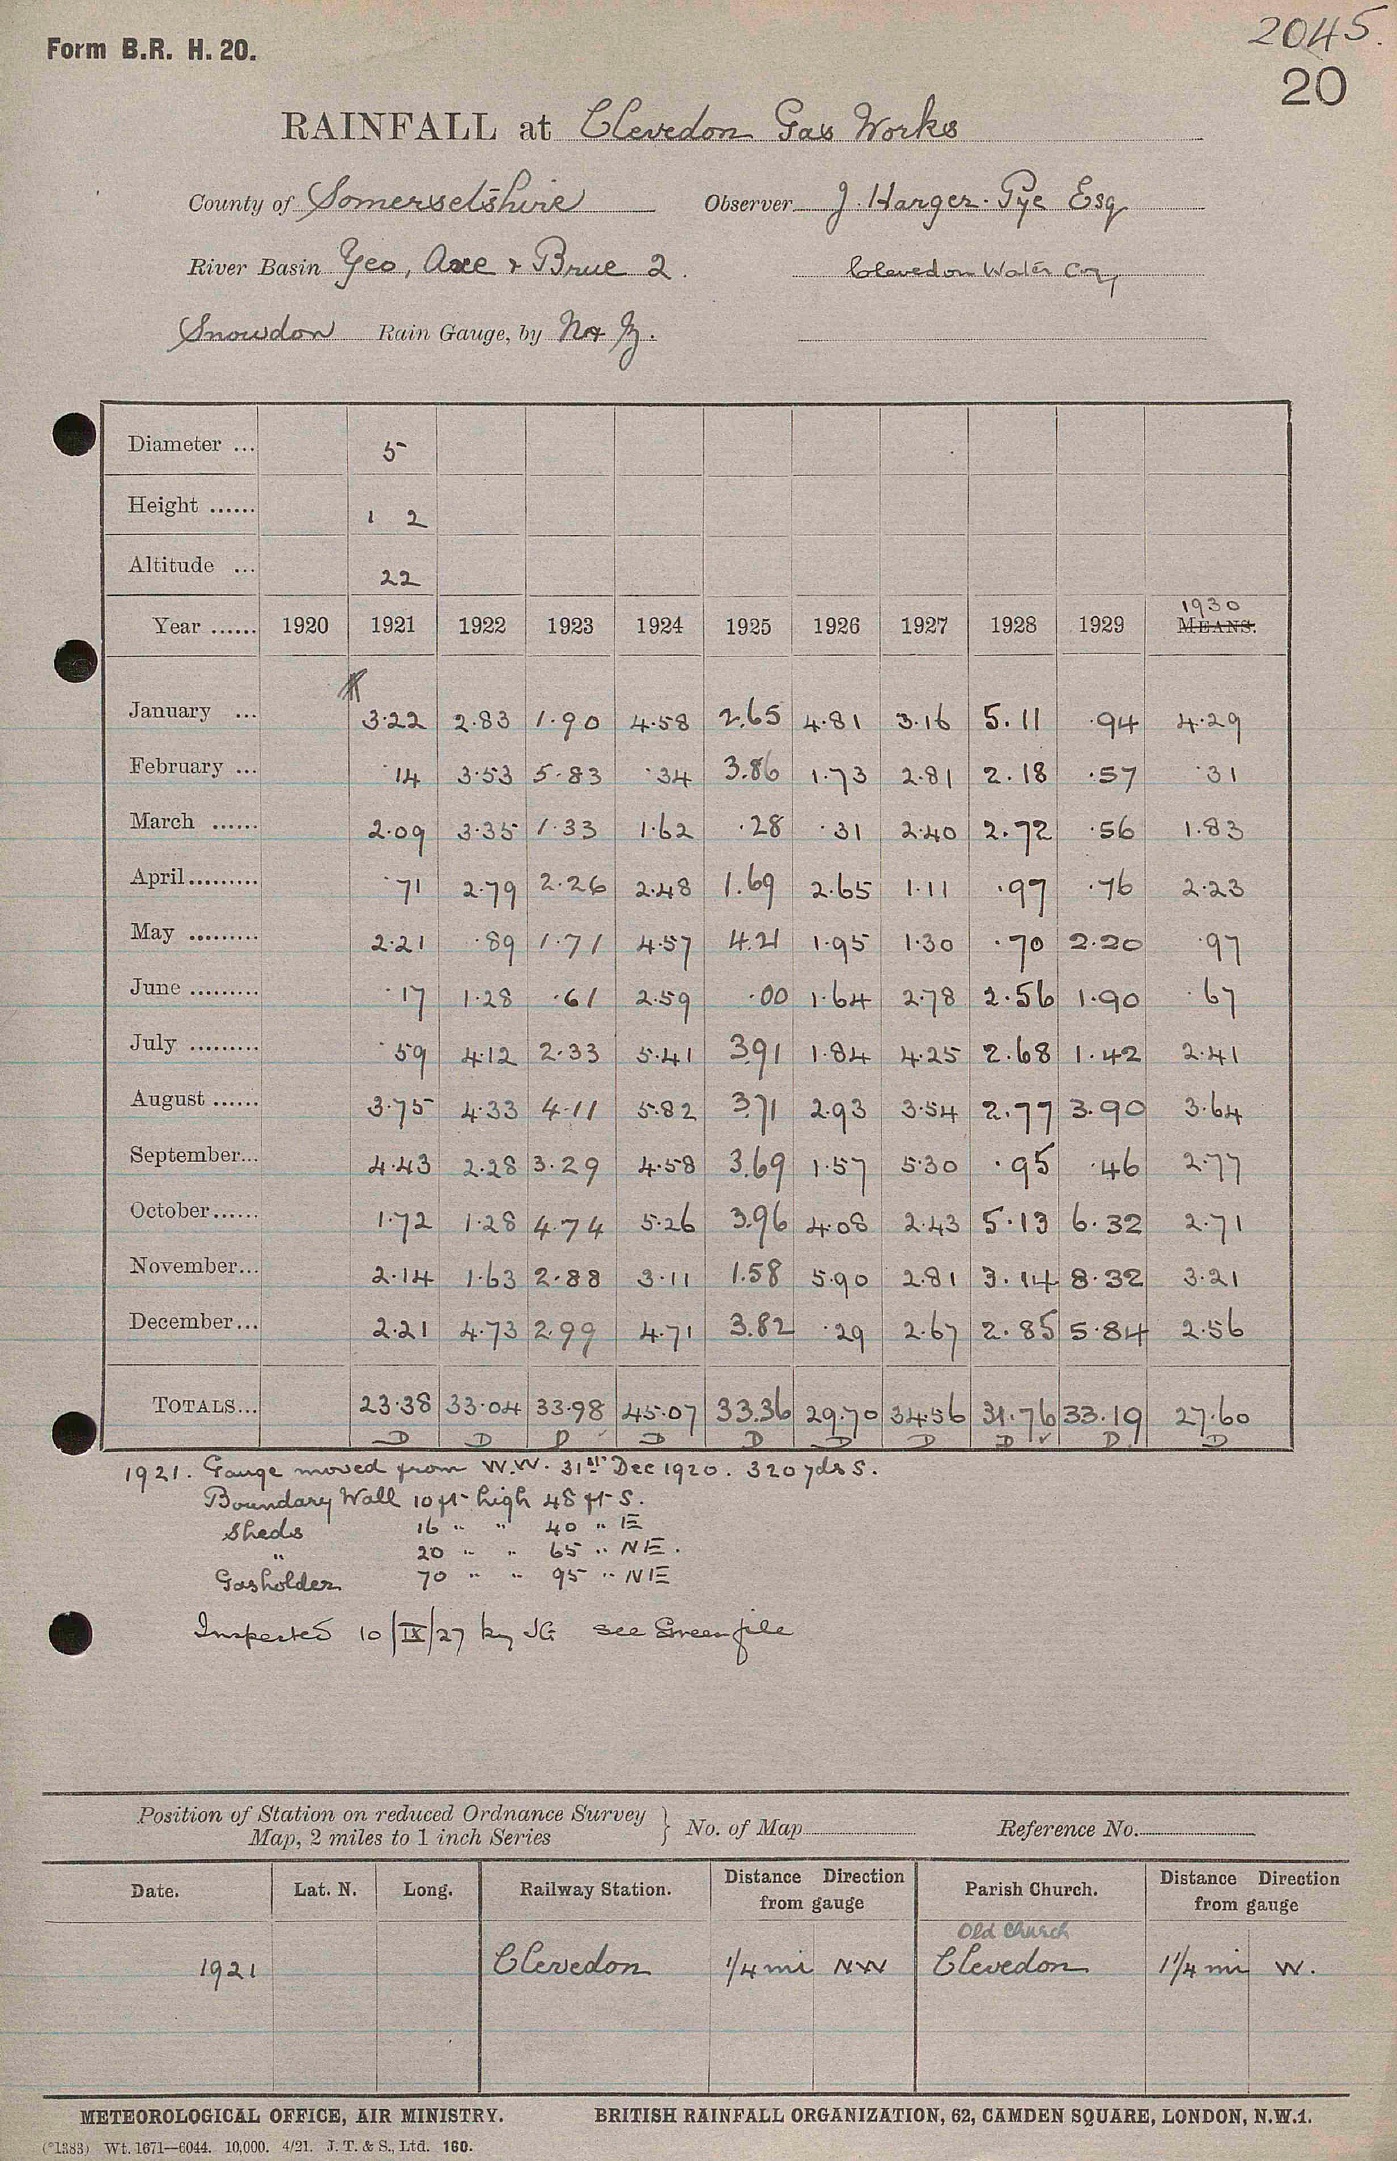 2045.
Form B.R. H. 20.
20
RAINFALL at Clevedon Gas Works
County of Somersetshire Observer J. Harger-Pye Esq
River Basin Yeo, Axe & Brue 2. Clevedon Water Coy,
Snowdon Rain Gauge, by N & Z.
Diameter ... 5
Height ...... 1 2
Altitude ... 22
Year ...... 1920 1921 1922 1923 1924 1925 1926 1927 1928 1929 1930 MEANS.
January ... 3.22 2.83 1.90 4.58 2.65 4.81 3.16 5.11 .94 4.29
February ... .14 3.53 5.83 .34 3.86 1.73 2.81 2.18 .57 .31
March ...... 2.09 3.35 1.33 1.62 .28 .31 2.40 2.72 .56 1.83
April......... .71 2.79 2.26 2.48 1.69 2.65 1.11 .97 .76 2.23
May ......... 2.21 .89 1.71 4.57 4.21 1.95 1.30 .70 2.20 .97
June ......... .17 1.28 .61 2.59 .00 1.64 2.78 2.56 1.90 .67
July ......... .59 4.12 2.33 5.41 3.91 1.84 4.25 2.68 1.42 2.41
August ...... 3.75 4.33 4.11 5.82 3.71 2.93 3.54 2.77 3.90 3.64
September... 4.43 2.28 3.29 4.58 3.69 1.57 5.30 .95 .46 2.77
October...... 1.72 1.28 4.74 5.26 3.96 4.08 2.43 5.13 6.32 2.71
November... 2.14 1.63 2.88 3.11 1.58 5.90 2.81 3.14 8.32 3.21
December... 2.21 4.73 2.99 4.71 3.82 .29 2.67 2.85 5.84 2.56
TOTALS... 23.38 33.04 33.98 45.07 33.36 29.70 34.56 31.76 33.19 27.60
D D D D D D D D D D
1921. Gauge moved from W.W. 31st Dec 1920. 320 yds S.
Boundary Wall 10 ft high 48 ft S.
Sheds 16 " " 40 " E
" 20 " " 65 " NE.
Gasholder 70 " " 95 " NE
Inspected 10/IX/27 by JG see Green file
Position of Station on reduced Ordnance Survey
Map, 2 miles to 1 inch Series } No. of Map Reference No.
Date. Lat. N. Long. Railway Station. Distance Direction from gauge Parish Church. Distance Direction from gauge
Old Church
1921 Clevedon 1/4 mi NW Clevedon 1 1/4 mi W.
METEOROLOGICAL OFFICE, AIR MINISTRY. BRITISH RAINFALL ORGANIZATION, 62, CAMDEN SQUARE, LONDON, N.W.1.
(*1383) Wt. 1671—6044. 10,000. 4/21. J. T. & S., Ltd. 160.